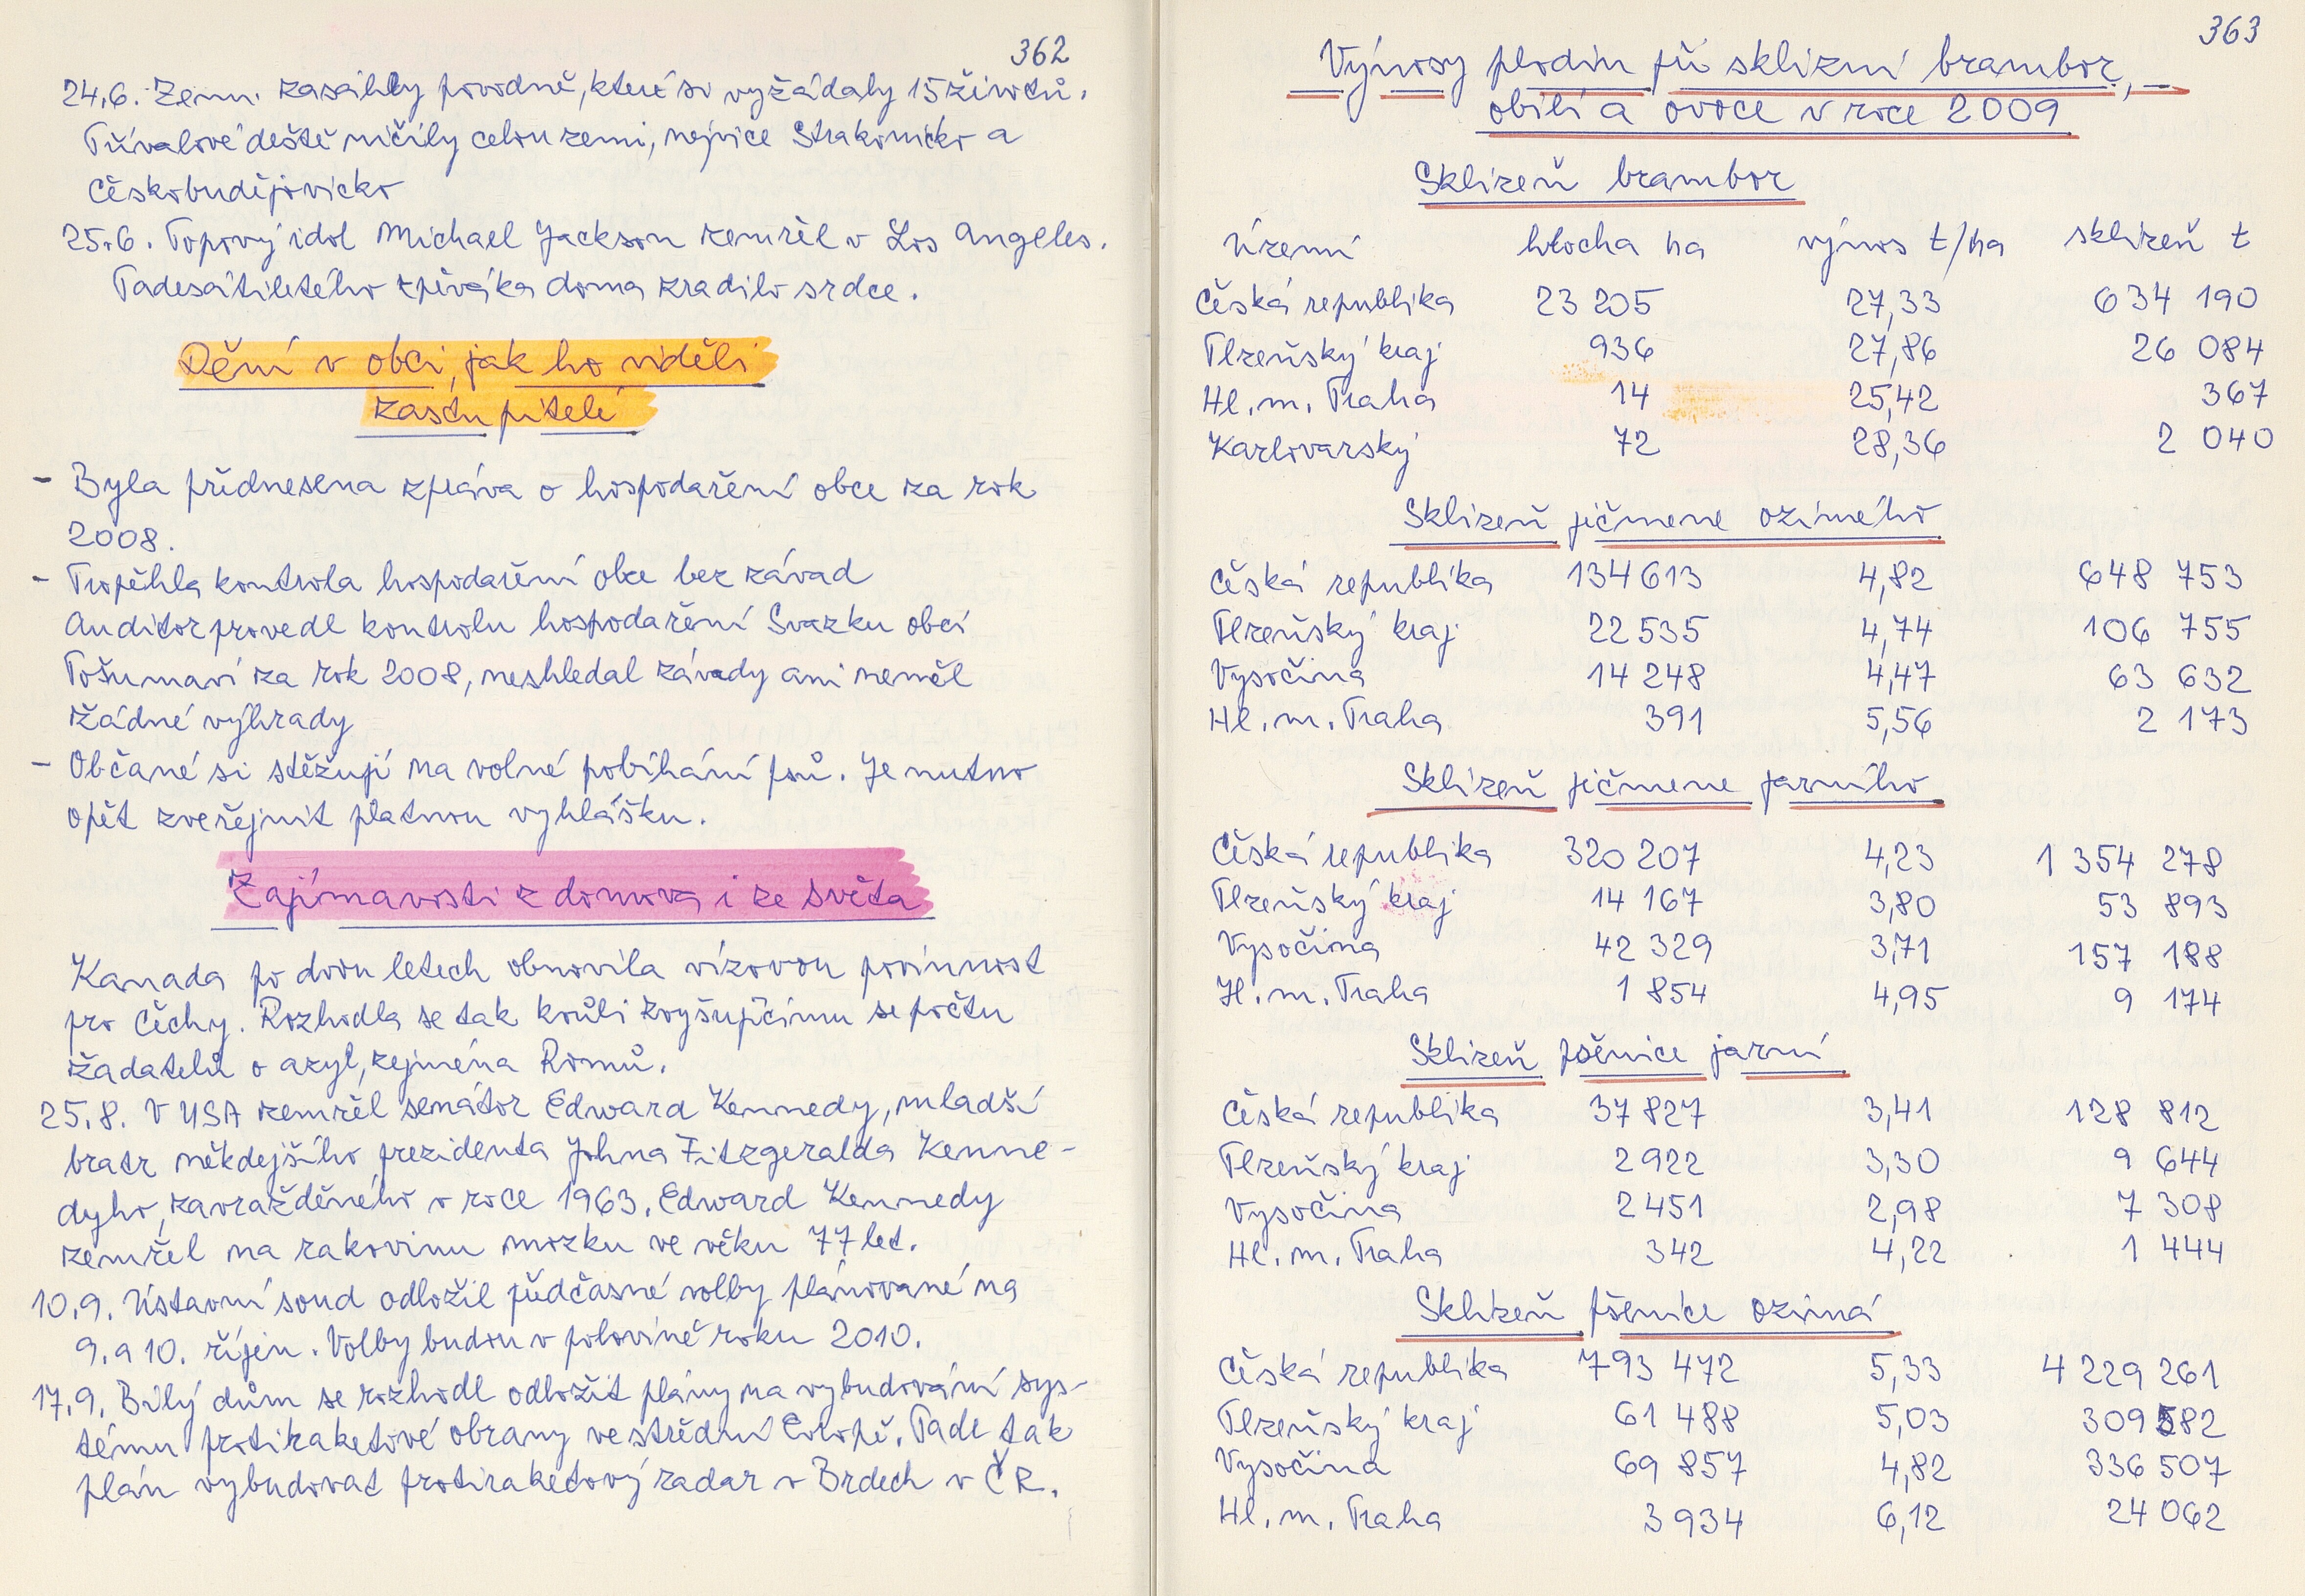 362
24.6. Zemi zasáhly povodně, které si vyžádaly 15 životů.
Přívalové deště ničily celou zemi, nejvíce Strakonicko a
Českobudějovicko
25.6. Popový idol Michael Jackson zemřel v Los Angeles.
Padesátiletého zpěváka doma zradilo srdce.
Dění v obci, jak ho viděli
zastupitelé
- Byla přednesena zpráva o hospodaření obce za rok
2008.
- Proběhla kontrola hospodaření obce bez závad
Auditor provedl kontrolu hospodaření Svazku obcí
Pošumaví za rok 2008, neshledal závady ani neměl
žádné výhrady
- Občané si stěžují na volné pobíhání psů. Je nutno
opět zveřejnit platnou vyhlášku.
Zajímavosti z domova i ze světa
Kanada po dvou letech obnovila vízovou povinnost
pro Čechy. Rozhodla se tak kvůli zvyšujícímu se počtu
žadatelů o azyl, zejména Romů.
25.8. V USA zemřel senátor Edward Kennedy, mladší
bratr někdejšího prezidenta Johna Fitzgeralda Kenne-
dyho, zavražděného v roce 1963. Edward Kennedy
zemřel na rakovinu mozku ve věku 77 let.
10.9. Ústavní soud odložil předčasné volby plánované na
9. a 10. říjen. Volby budou v polovině roku 2010.
17.9. Bílý dům se rozhodl odložit plány na vybudování sys-
tému protiraketové obrany ve střední Evropě. Padl tak
plán vybudovat protiraketový radar v Brdech v ČR.
363
Výnosy plodin při sklizni brambor,
obilí a ovoce v roce 2009
Sklizeň brambor
území plocha ha výnos t/ha sklizeň t
Česká republika 23 205 27,33 634 190
Plzeňský kraj 936 27,86 26 084
Hl. m. Praha 14 25,42 367
Karlovarský 72 28,36 2 040
Sklizeň ječmene ozimého
Česká republika 134 613 4,82 648 753
Plzeňský kraj 22 535 4,74 106 755
Vysočina 14 248 4,47 63 632
Hl. m. Praha 391 5,56 2 173
Sklizeň ječmene jarního
Česká republika 320 207 4,23 1 354 278
Plzeňský kraj 14 167 3,80 53 893
Vysočina 42 329 3,71 157 188
Hl. m. Praha 1 854 4,95 9 174
Sklizeň pšenice jarní
Česká republika 37 827 3,41 128 812
Plzeňský kraj 2 922 3,30 9 644
Vysočina 2 451 2,98 7 308
Hl. m. Praha 342 4,22 1 444
Sklizeň pšenice ozimá
Česká republika 793 472 5,33 4 229 261
Plzeňský kraj 61 488 5,03 309 582
Vysočina 69 857 4,82 336 507
Hl. m. Praha 3 934 6,12 24 062